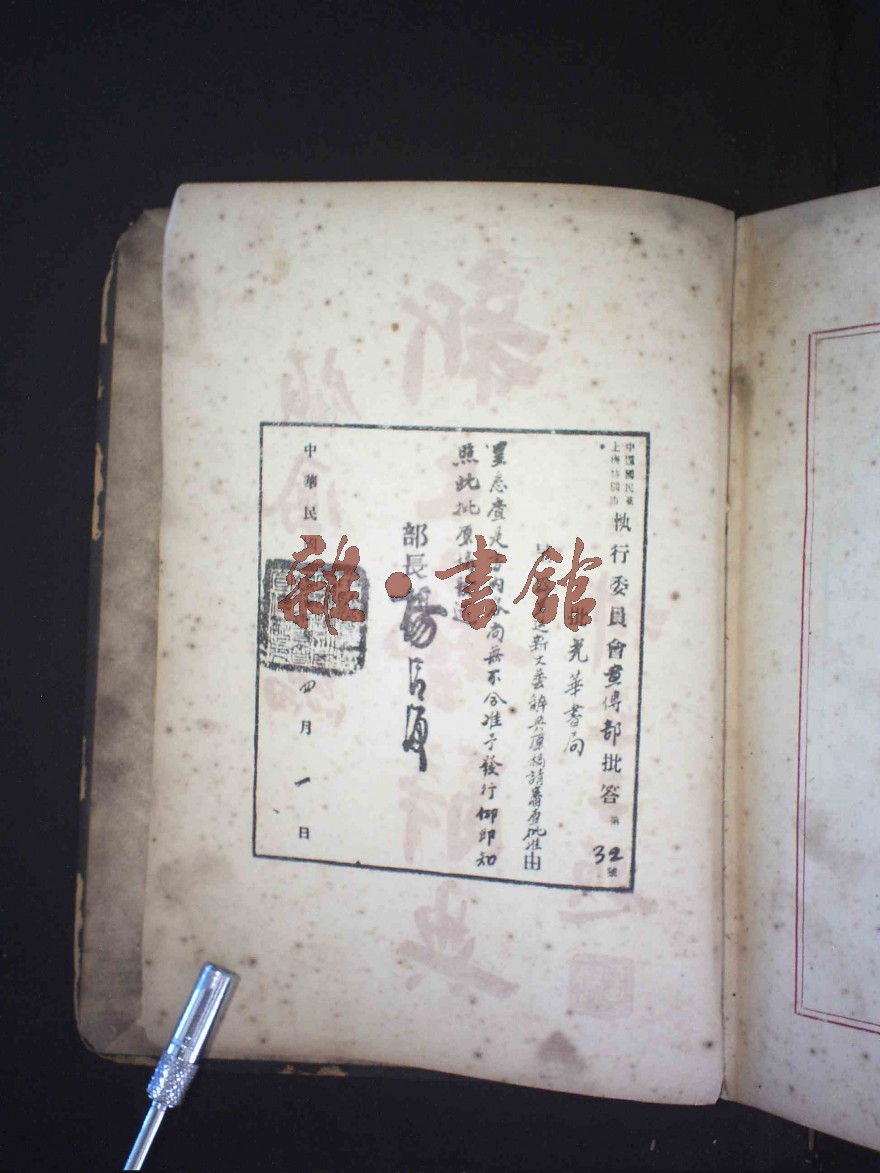 中國國民黨
上海特別市
執行委員會宣傳部批答 第32號
批光華書局
新文藝辭典原稿請審查批准由
呈悉查是書內容尚無不合准予發行仰即知
照此批原稿
部長
中華民國
四月一日
雜·書館